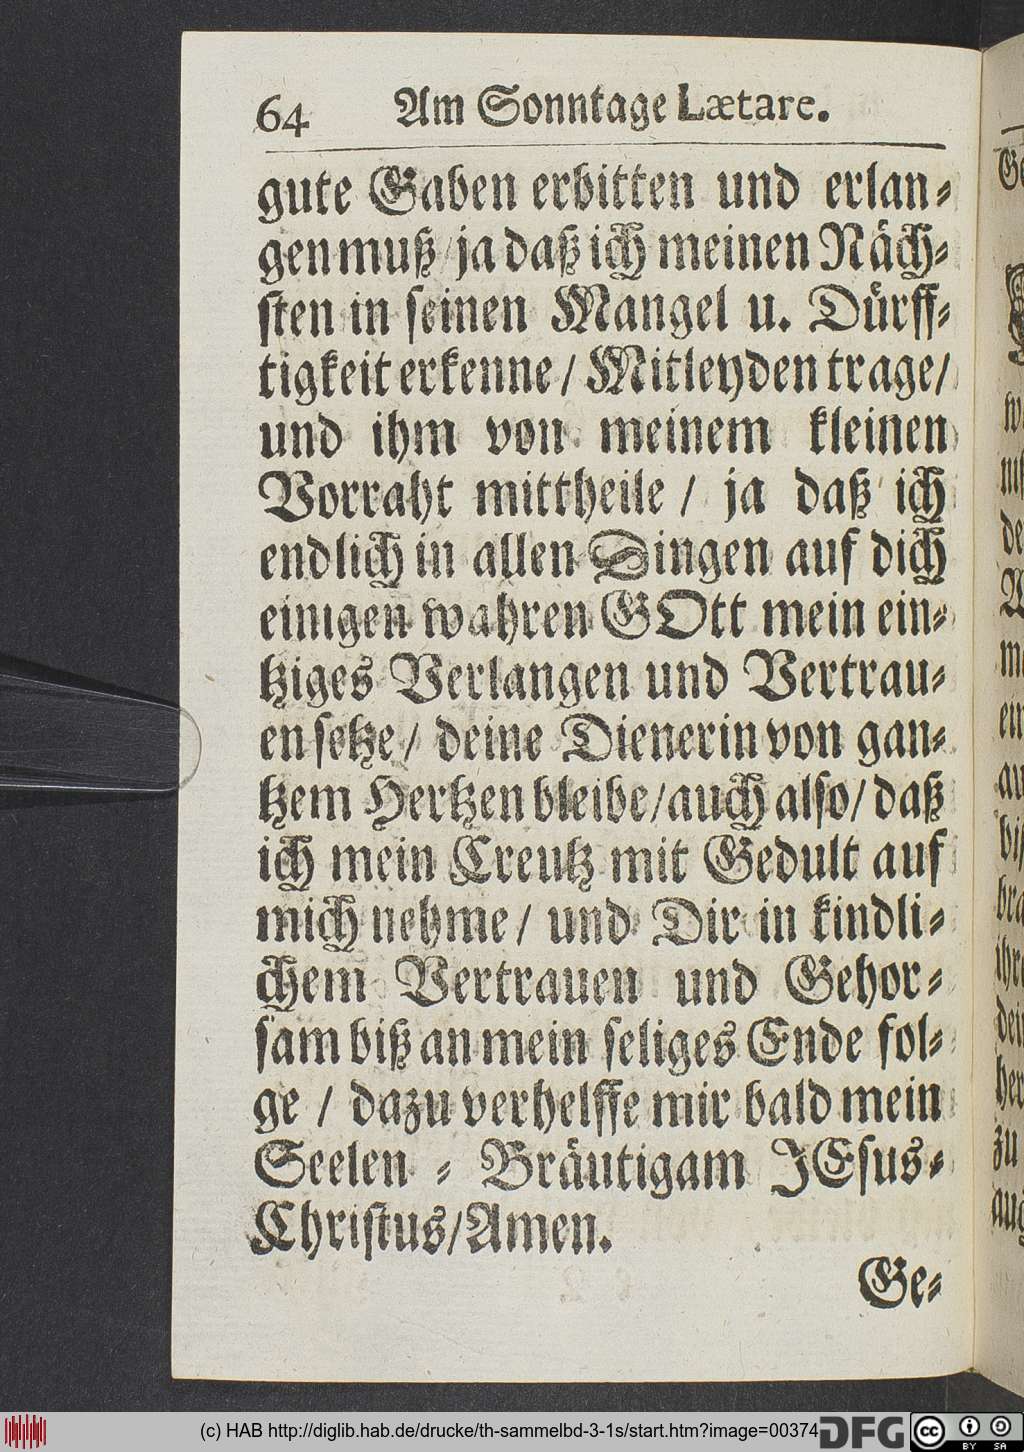 64 Am Sonntage Lætare.
gute Gaben erbitten und erlan-
gen muß / ja daß ich meinen Näch-
sten in seinen Mangel u. Dürff-
tigkeit erkenne / Mitleyden trage /
und ihm von meinem kleinen
Vorraht mittheile / ja daß ich
endlich in allen Dingen auf dich
einigen wahren GOtt mein ein-
tziges Verlangen und Vertrau-
en setze / deine Dienerin von gan-
tzem Hertzen bleibe / auch also / daß
ich mein Creutz mit Gedult auf
mich nehme / und Dir in kindli-
chem Vertrauen und Gehor-
sam biß an mein seliges Ende fol-
ge / dazu verhelffe mir bald mein
Seelen - Bräutigam JEsus-
Christus / Amen.
Ge-
(c) HAB http://diglib.hab.de/drucke/th-sammelbd-3-1s/start.htm?image=00374
DFG cc BY SA